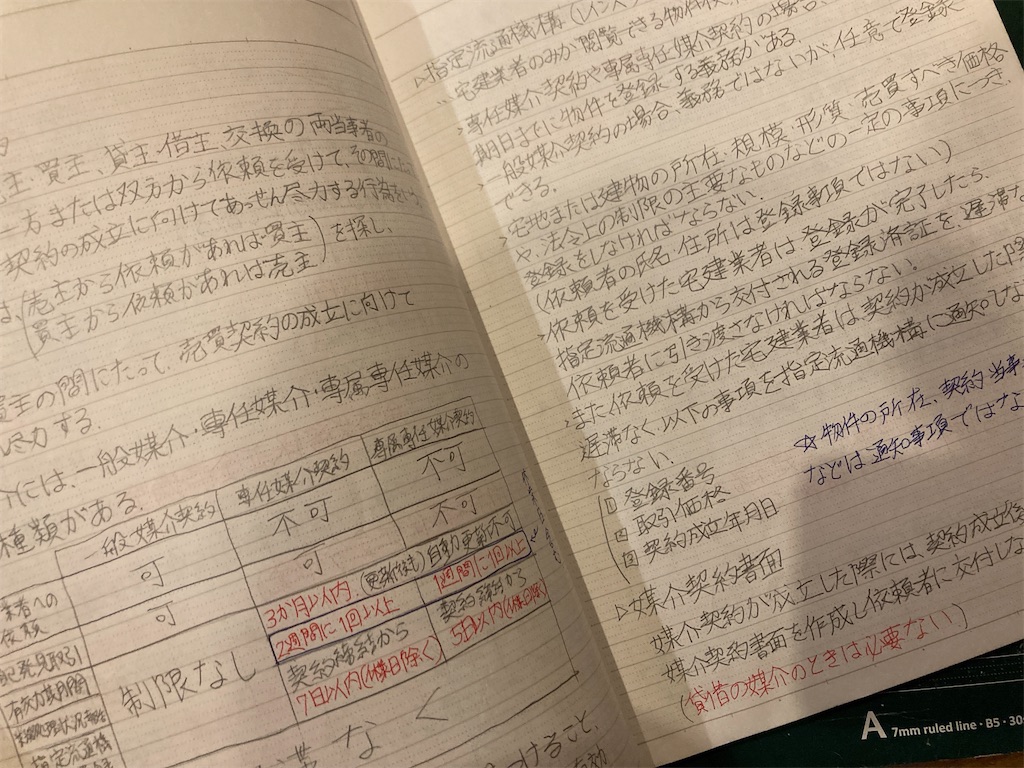 主・買主、貸主・借主、交換の両当事者の
一方または双方から依頼を受けて、その間に
契約の成立に向けてあっせん尽力する行為
は、(売主から依頼があれば買主
買主から依頼があれば売主)を探し、
買主の間にたって、売買契約の成立に向けて
尽力する。
介には、一般媒介・専任媒介・専属専任媒介の
種類がある。
一般媒介契約 専任媒介契約 専属専任媒介契約
業者への依頼 可 不可 不可
己発見取引 可 可 不可
有効期間 3か月以内。(更新は可) 自動更新不可
2週間に1回以上 1週間に1回以上
指定流通機 契約締結から7日以内(休業日除く) 契約締結から5日以内(休業日除く)
制限なし
つけること、
▷指定流通機構(レインズ
宅建業者のみが閲覧できる物件検
専任媒介契約や専属専任媒介契約の場合、
期日までに物件を登録する義務がある。
一般媒介契約の場合、義務ではないが、任意で登録
できる。
宅地または建物の所在・規模・形質・売買すべき価格
や、法令上の制限の主要なものなどの一定の事項につき
登録をしなければならない。
(依頼者の氏名・住所は登録事項ではない)
依頼を受けた宅建業者は、登録が完了したら、
指定流通機構から交付される登録済証を、遅滞な
依頼者に引き渡さなければならない。
また依頼を受けた宅建業者は、契約が成立した
遅滞なく、以下の事項を指定流通機構に通知しな
ならない。
登録番号
取引価格
契約成立年月日
☆物件の所在、契約当事
などは通知事項ではな
▷媒介契約書面
媒介契約が成立した際には、契約成立後
媒介契約書面を作成し依頼者に交付しな
(貸借の媒介のときは必要ない。)
A 7mm ruled line・B5・30